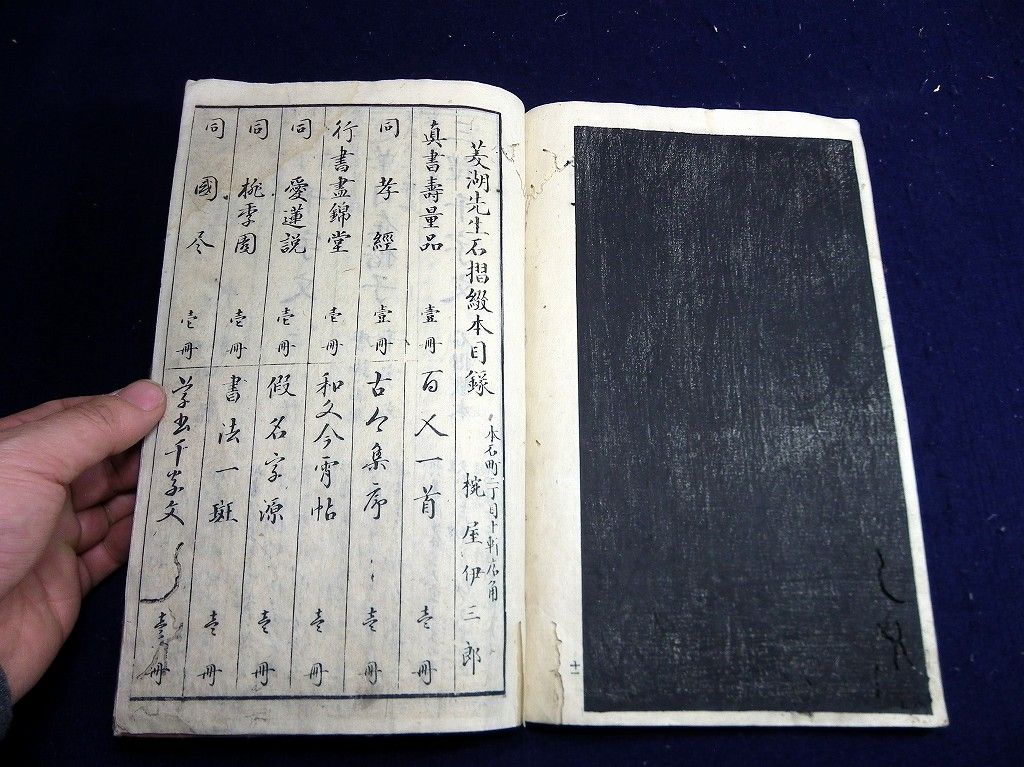 菱湖先生石摺綴本目録
本石町二丁目十軒店角
椀屋伊三郎
真書壽量品 壹冊
同 孝經 壹冊
行書晝錦堂 壱冊
同 愛蓮説 壱冊
同 桃李園 壱冊
同 國尽 壱冊
百人一首 壱冊
古今集序 壱冊
和文今霄帖 壱冊
假名字源 壱冊
書法一斑 壱冊
草書千字文 壱冊
十一